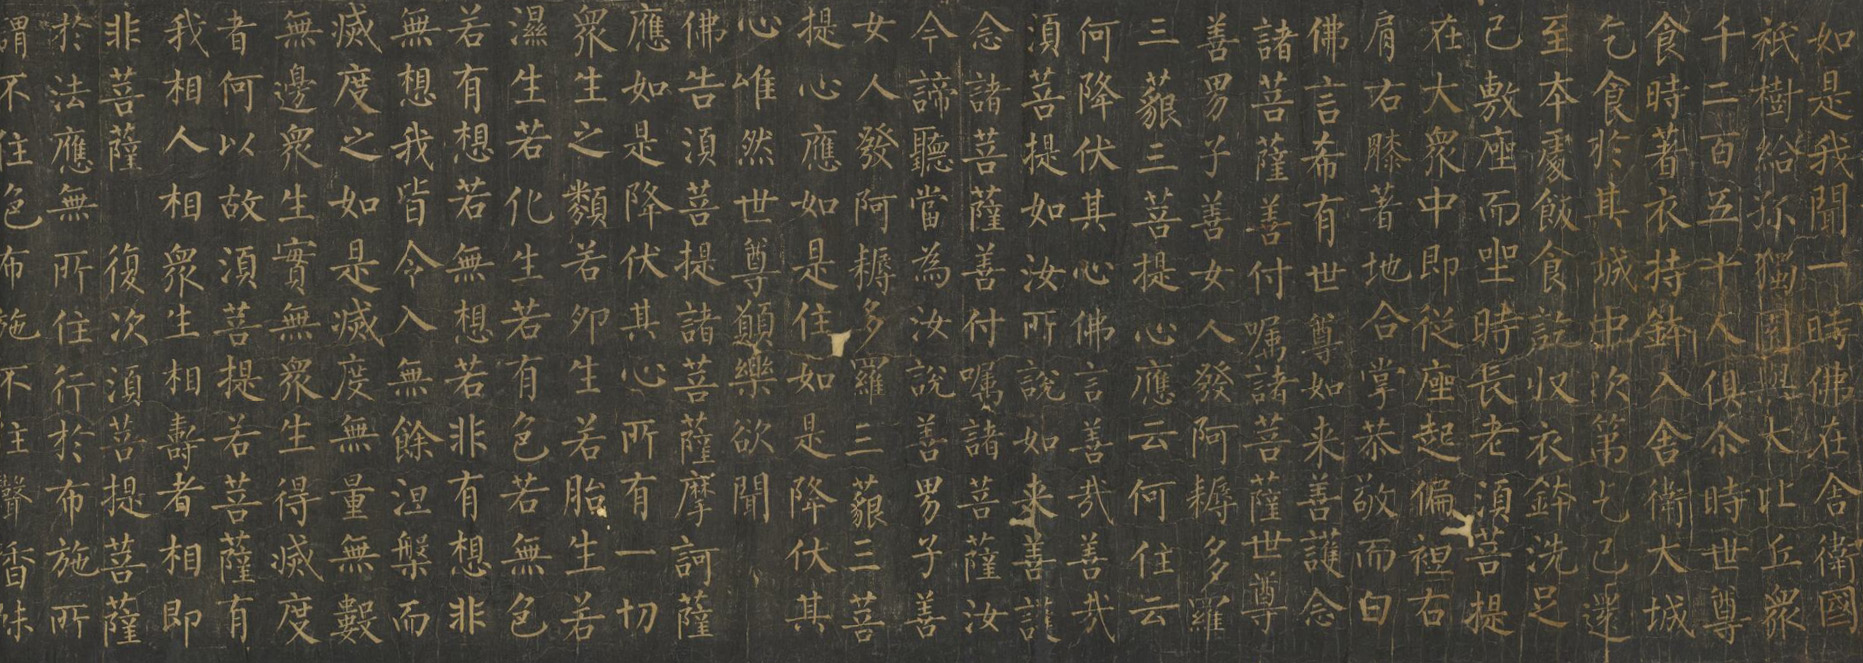 如是我聞一時佛在舍衛國
祇樹給孤獨園與大比丘眾
千二百五十人俱尒時世尊
食時著衣持鉢入舍衛大城
乞食於其城中次第乞已還
至本處飯食訖収衣鉢洗足
已敷座而坐時長老湏菩提
在大眾中即從座起偏袒右
肩右膝著地合掌恭敬而白
佛言希有世尊如来善護念
諸菩薩善付嘱諸菩薩世尊
善男子善女人發阿耨多羅
三藐三菩提心應云何住云
何降伏其心佛言善哉善哉
湏菩提如汝所說如来善護
念諸菩薩善付嘱諸菩薩汝
今諦聽當為汝說善男子善
女人發阿耨多羅三藐三菩
提心應如是住如是降伏其
心唯然世尊願樂欲聞
佛告湏菩提諸菩薩摩訶薩
應如是降伏其心所有一切
眾生之類若卵生若胎生若
濕生若化生若有色若無色
若有想若無想若非有想非
無想我皆令入無餘涅槃而
滅度之如是滅度無量無數
無邊眾生實無眾生得滅度
者何以故湏菩提若菩薩有
我相人相眾生相壽者相即
非菩薩 復次湏菩提菩薩
於法應無所住行於布施所
謂不住色布施不住聲香味